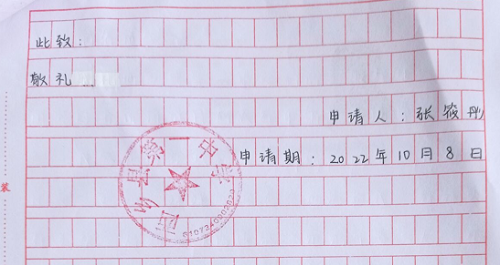 此致:
敬礼
申请人:张筱彤
申请期:2022年10月8日
西乡县第一中学
装